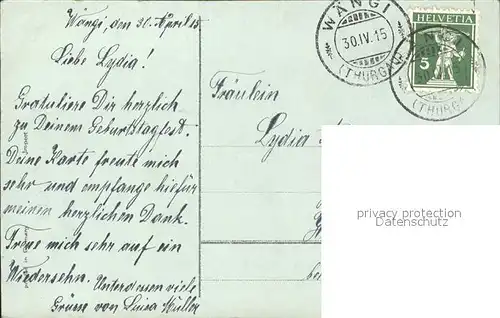 Wängi, den 30. April 15
Liebe Lydia!
Gratuliere Dir herzlich
zu Deinem Geburtstagfest.
Deine Karte freute mich
sehr und empfange hiefür
meinen herzlichen Dank.
Freue mich sehr auf ein
Wiedersehn. Unterdessen viele
Grüsse von Luisa Müller
Fräulein
Lydia
bei
WÄNGI
30.IV.15
(THURG.)
HELVETIA
5
(THURG
privacy protection
Datenschutz